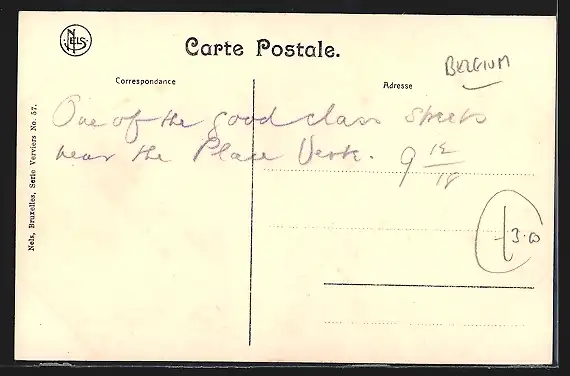 NELS
Carte Postale.
BELGIUM
Correspondance
Adresse
One of the good class streets
near the Place Verte. 9 12/18
3.00
Nels, Bruxelles, Serie Verviers No. 57.